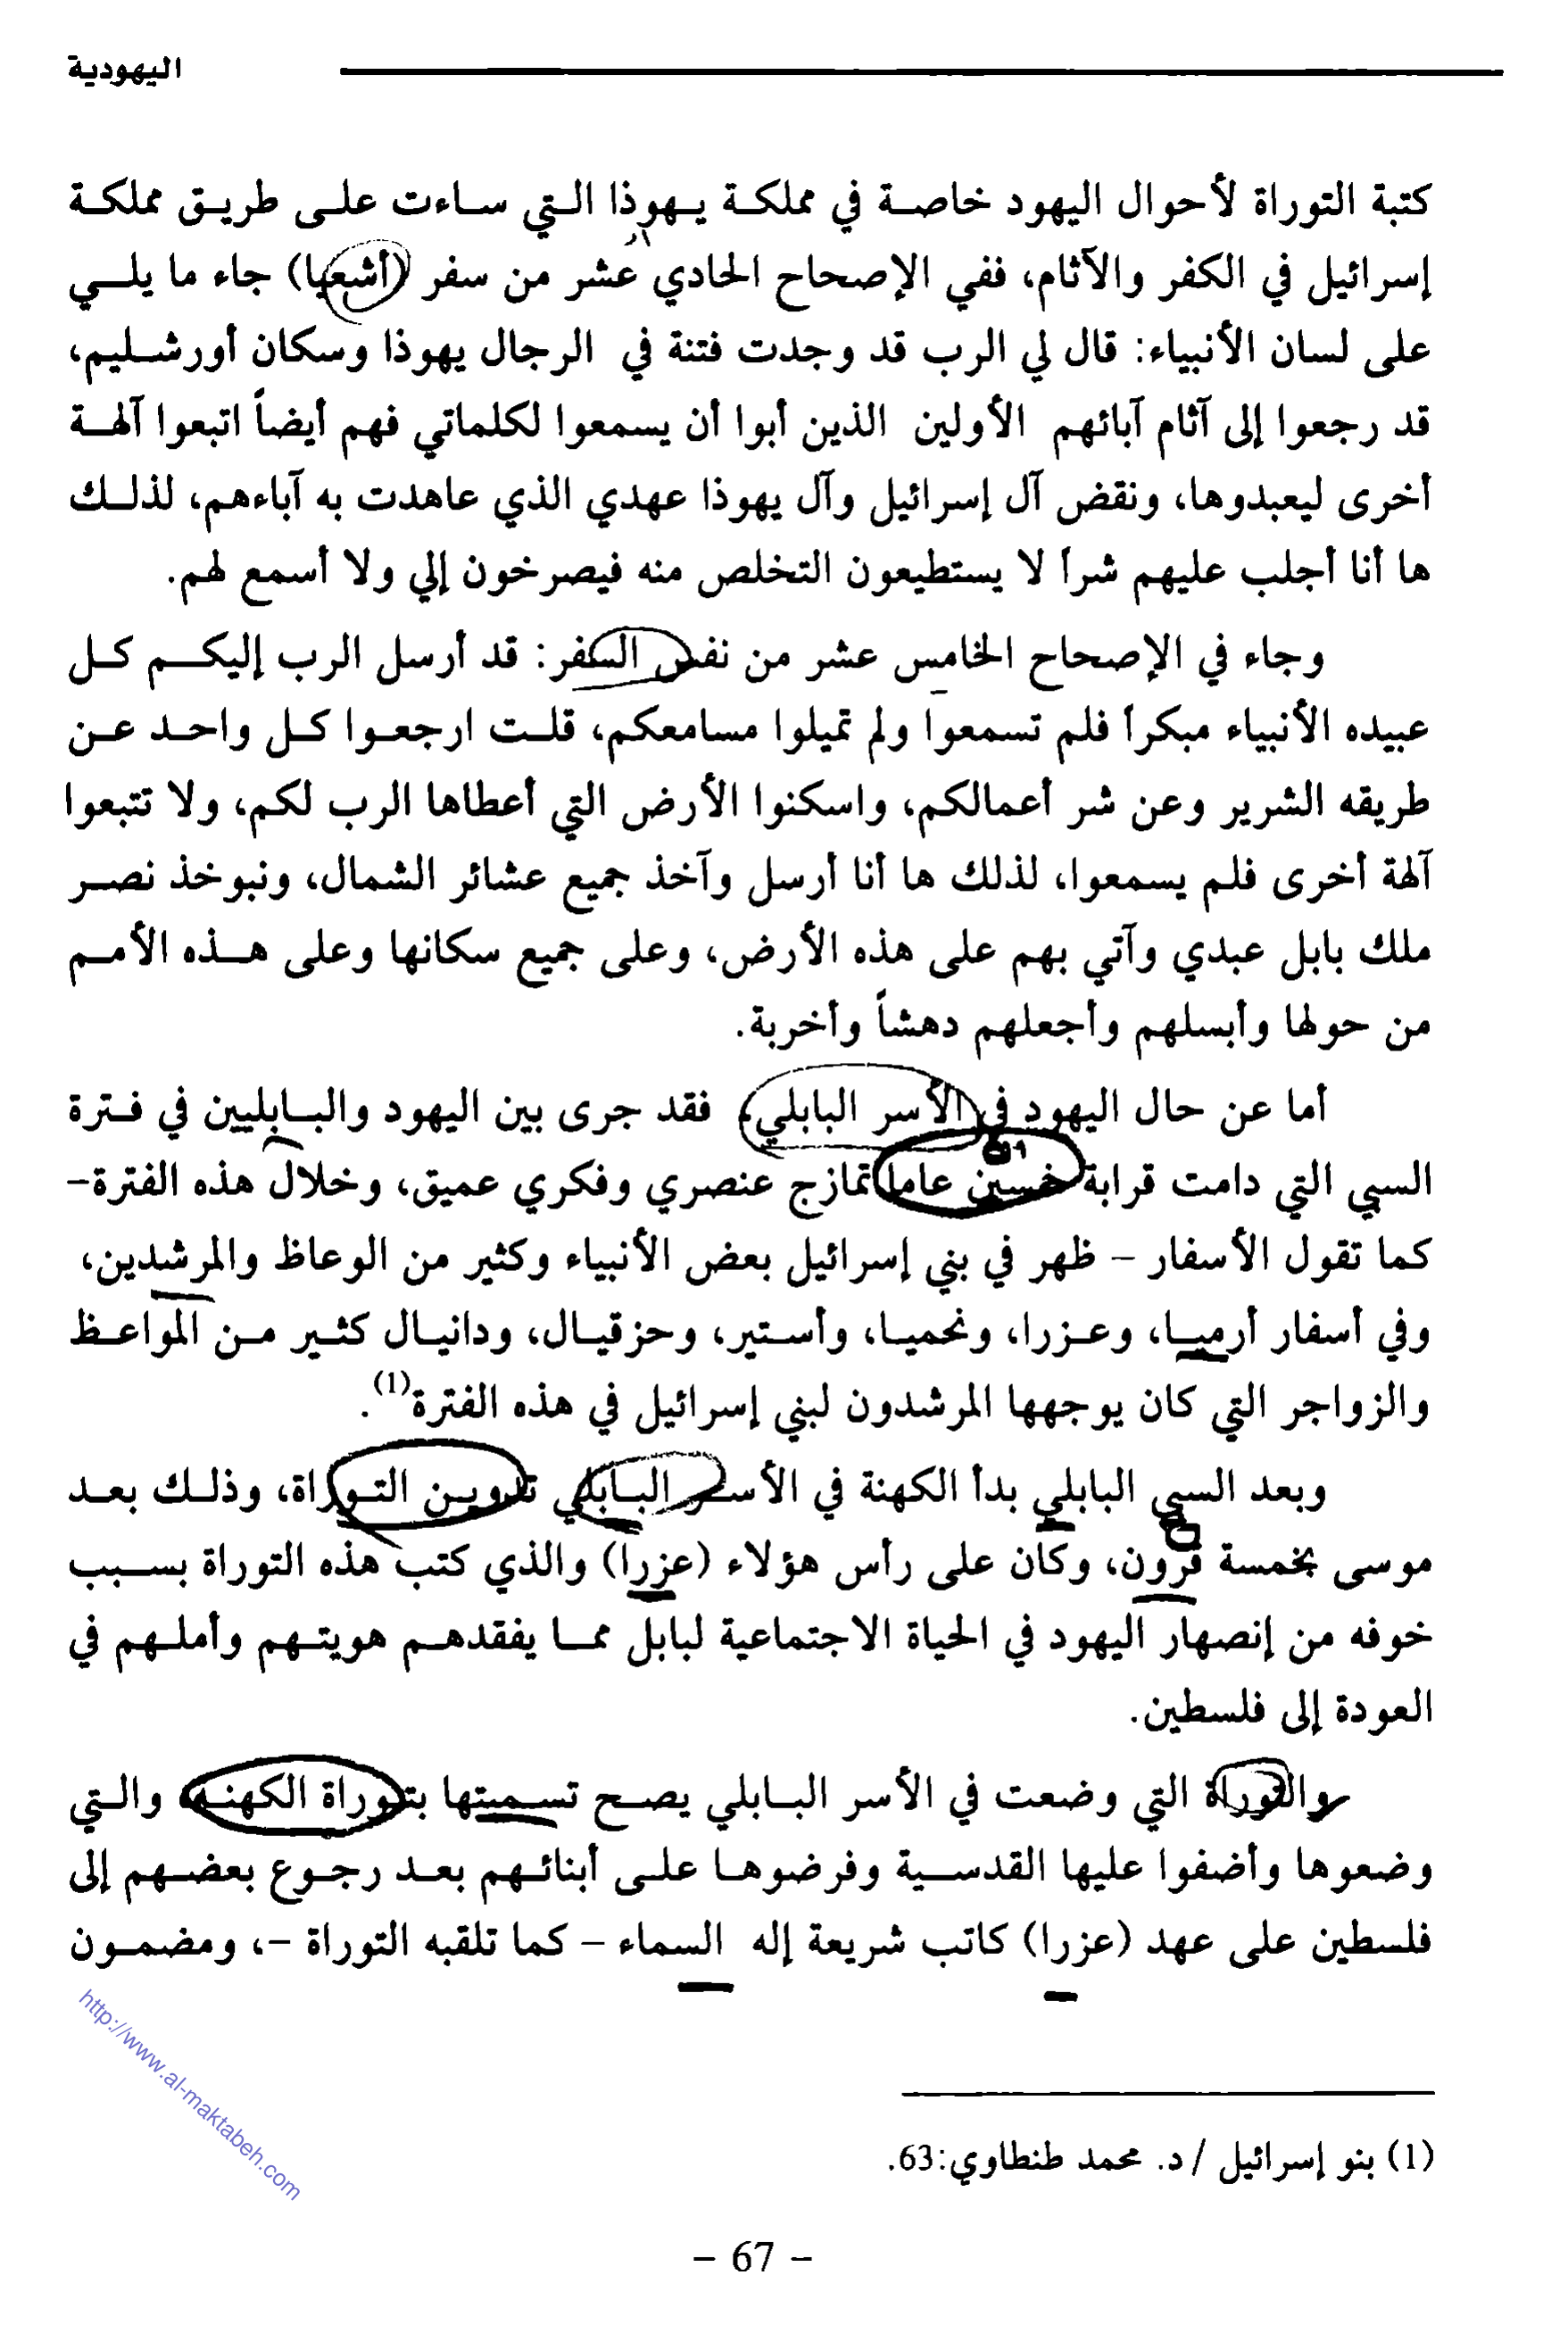 اليهودية
كتبة التوراة لأحوال اليهود خاصة في مملكة يهوذا التي ساءت على طريق مملكة
إسرائيل في الكفر والآثام، ففي الإصحاح الحادي عشر من سفر (أشعيا) جاء ما يلي
على لسان الأنبياء: قال لي الرب قد وجدت فتنة في الرجال يهوذا وسكان أورشليم،
قد رجعوا إلى آثام آبائهم الأولين الذين أبوا أن يسمعوا لكلماتي فهم أيضاً اتبعوا آلهة
أخرى ليعبدوها، ونقض آل إسرائيل وآل يهوذا عهدي الذي عاهدت به آباءهم، لذلك
ها أنا أجلب عليهم شراً لا يستطيعون التخلص منه فيصرخون إلي ولا أسمع لهم.
وجاء في الإصحاح الخامس عشر من نفس السفر: قد أرسل الرب إليكم كل
عبيده الأنبياء مبكراً فلم تسمعوا ولم تميلوا مسامعكم، قلت ارجعوا كل واحد عن
طريقه الشرير وعن شر أعمالكم، واسكنوا الأرض التي أعطاها الرب لكم، ولا تتبعوا
آلهة أخرى فلم يسمعوا، لذلك ها أنا أرسل وآخذ جميع عشائر الشمال، ونبوخذ نصر
ملك بابل عبدي وآتي بهم على هذه الأرض، وعلى جميع سكانها وعلى هذه الأمم
من حولها وأبسلهم وأجعلهم دهشاً وأخربة.
أما عن حال اليهود في الأسر البابلي، فقد جرى بين اليهود والبابليين في فترة
السبي التي دامت قرابة خمسين عاما تمازج عنصري وفكري عميق، وخلال هذه الفترة-
كما تقول الأسفار - ظهر في بني إسرائيل بعض الأنبياء وكثير من الوعاظ والمرشدين،
وفي أسفار أرميا، وعزرا، ونحميا، وأستير، وحزقيال، ودانيال كثير من المواعظ
والزواجر التي كان يوجهها المرشدون لبني إسرائيل في هذه الفترة(1).
وبعد السبي البابلي بدأ الكهنة في الأسر البابلي تدوين التوراة، وذلك بعد
موسى بخمسة قرون، وكان على رأس هؤلاء (عزرا) والذي كتب هذه التوراة بسبب
خوفه من إنصهار اليهود في الحياة الاجتماعية لبابل مما يفقدهم هويتهم وأملهم في
العودة إلى فلسطين.
والتوراة التي وضعت في الأسر البابلي يصح تسميتها بتوراة الكهنة، والتي
وضعوها وأضفوا عليها القدسية وفرضوها على أبنائهم بعد رجوع بعضهم إلى
فلسطين على عهد (عزرا) كاتب شريعة إله السماء - كما تلقبه التوراة -، ومضمون
http://www.al-maktabeh.com
(1) بنو إسرائيل / د. محمد طنطاوي:63.
- 67 -